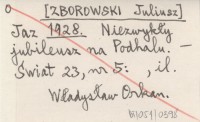 [ZBOROWSKI Juliusz]
Jaz 1928. Niezwykły
jubileusz na Podhalu. —
Świat 23, nr 5: , il.
Władysław Orkan.